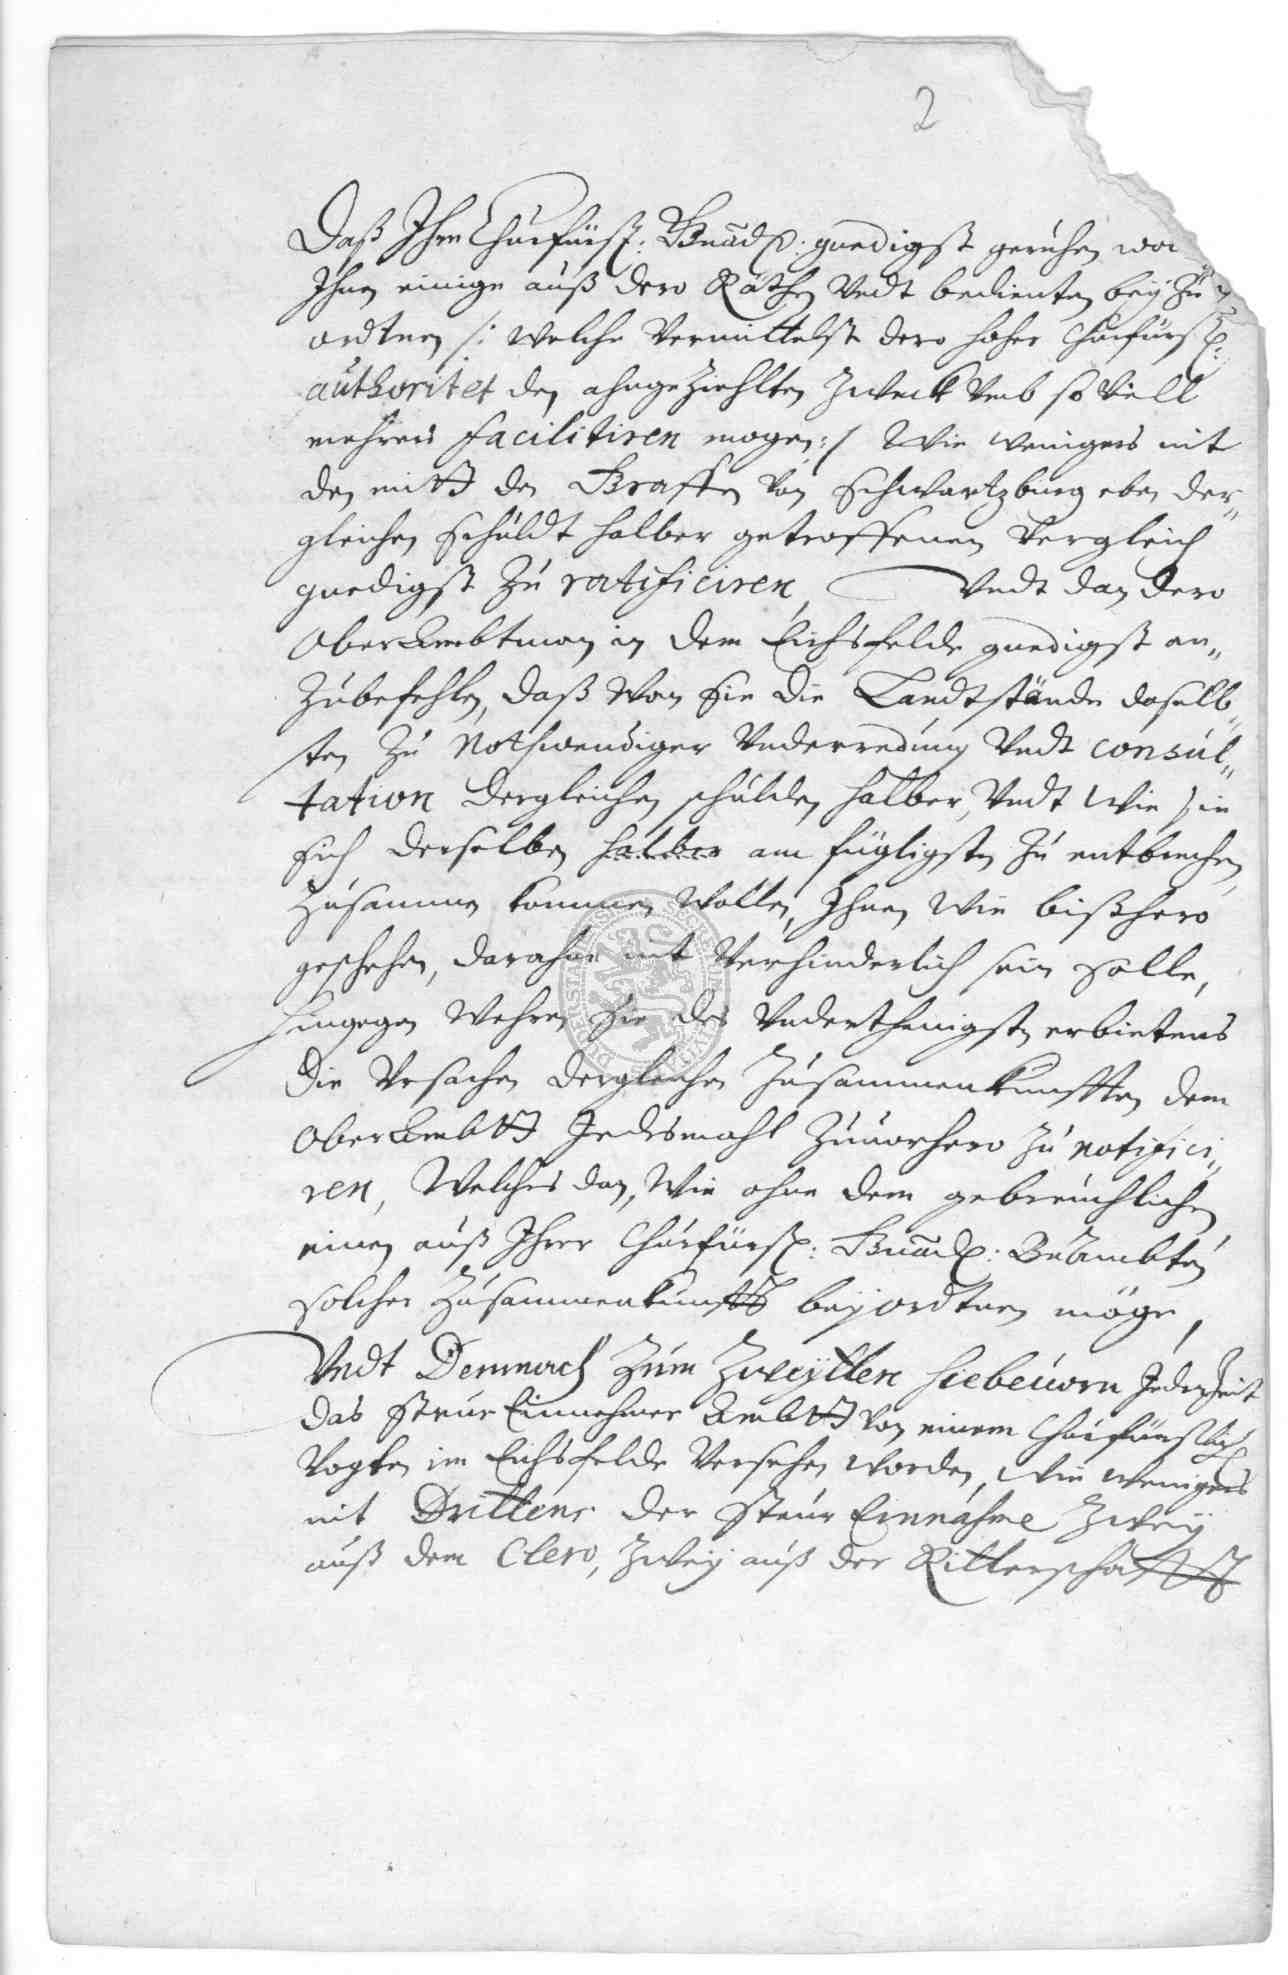 2
Daß Ihre Churfürstl: Gnadl: gnedigst geruhen wo
Ihnen einige auß dero Räthen Vndt bedienten bey Zu
ordtnen /: welche Vermittelst dero hoher Churfürstl:
authoritet den ahngeziehlten Zweck Vmb so Viell
mehrers facilitiren mogen :/ Wie wenigers nit
den mitt den Graffen Von Schwartzburg eben der„
gleichen schuldt halber getroffenen Vergleich
gnedigst Zu ratificiren, Vndt dan dero
OberAmbtman in dem Eichsfelde gnedigst an„
Zubefehlen, daß Wan Sie die Landtstände daselb„
sten Zu Nothwendiger Vnderredung Vndt consul„
tation dergleichen schulden halber, Vndt Wie sie
sich derselben halber am fügligsten Zu entbrechen,
Zusammen kommen Wollen, Ihnen Wie bißhero
geschehen, darahne nit Verhinderlich sein solle,
Hingegen Wehren Sie des Vnderthenigsten erbietens
die Vrsachen dergleichen Zusammenkunfften dem
OberAmbtt Jedesmahl Zuuorhero Zu notifici„
ren, Welches dan, Wie ohne dem gebreuchlichen
einen auß Ihrer Churfürstl: Gnadl: Beambten
solcher Zusammenkunfft beyordtnen möge,
Vndt Demnach Zum Zweytten hiebeuorn Jederzeit
das Steur Einnehmer Ambtt Von einem Churfürstlich
Vogten im Eichsfelde Versehen Worden, Wie wenigers
nit Drittens der Steur Einnahme Zwey
auß dem Clero, Zwey auß der Ritterschafft